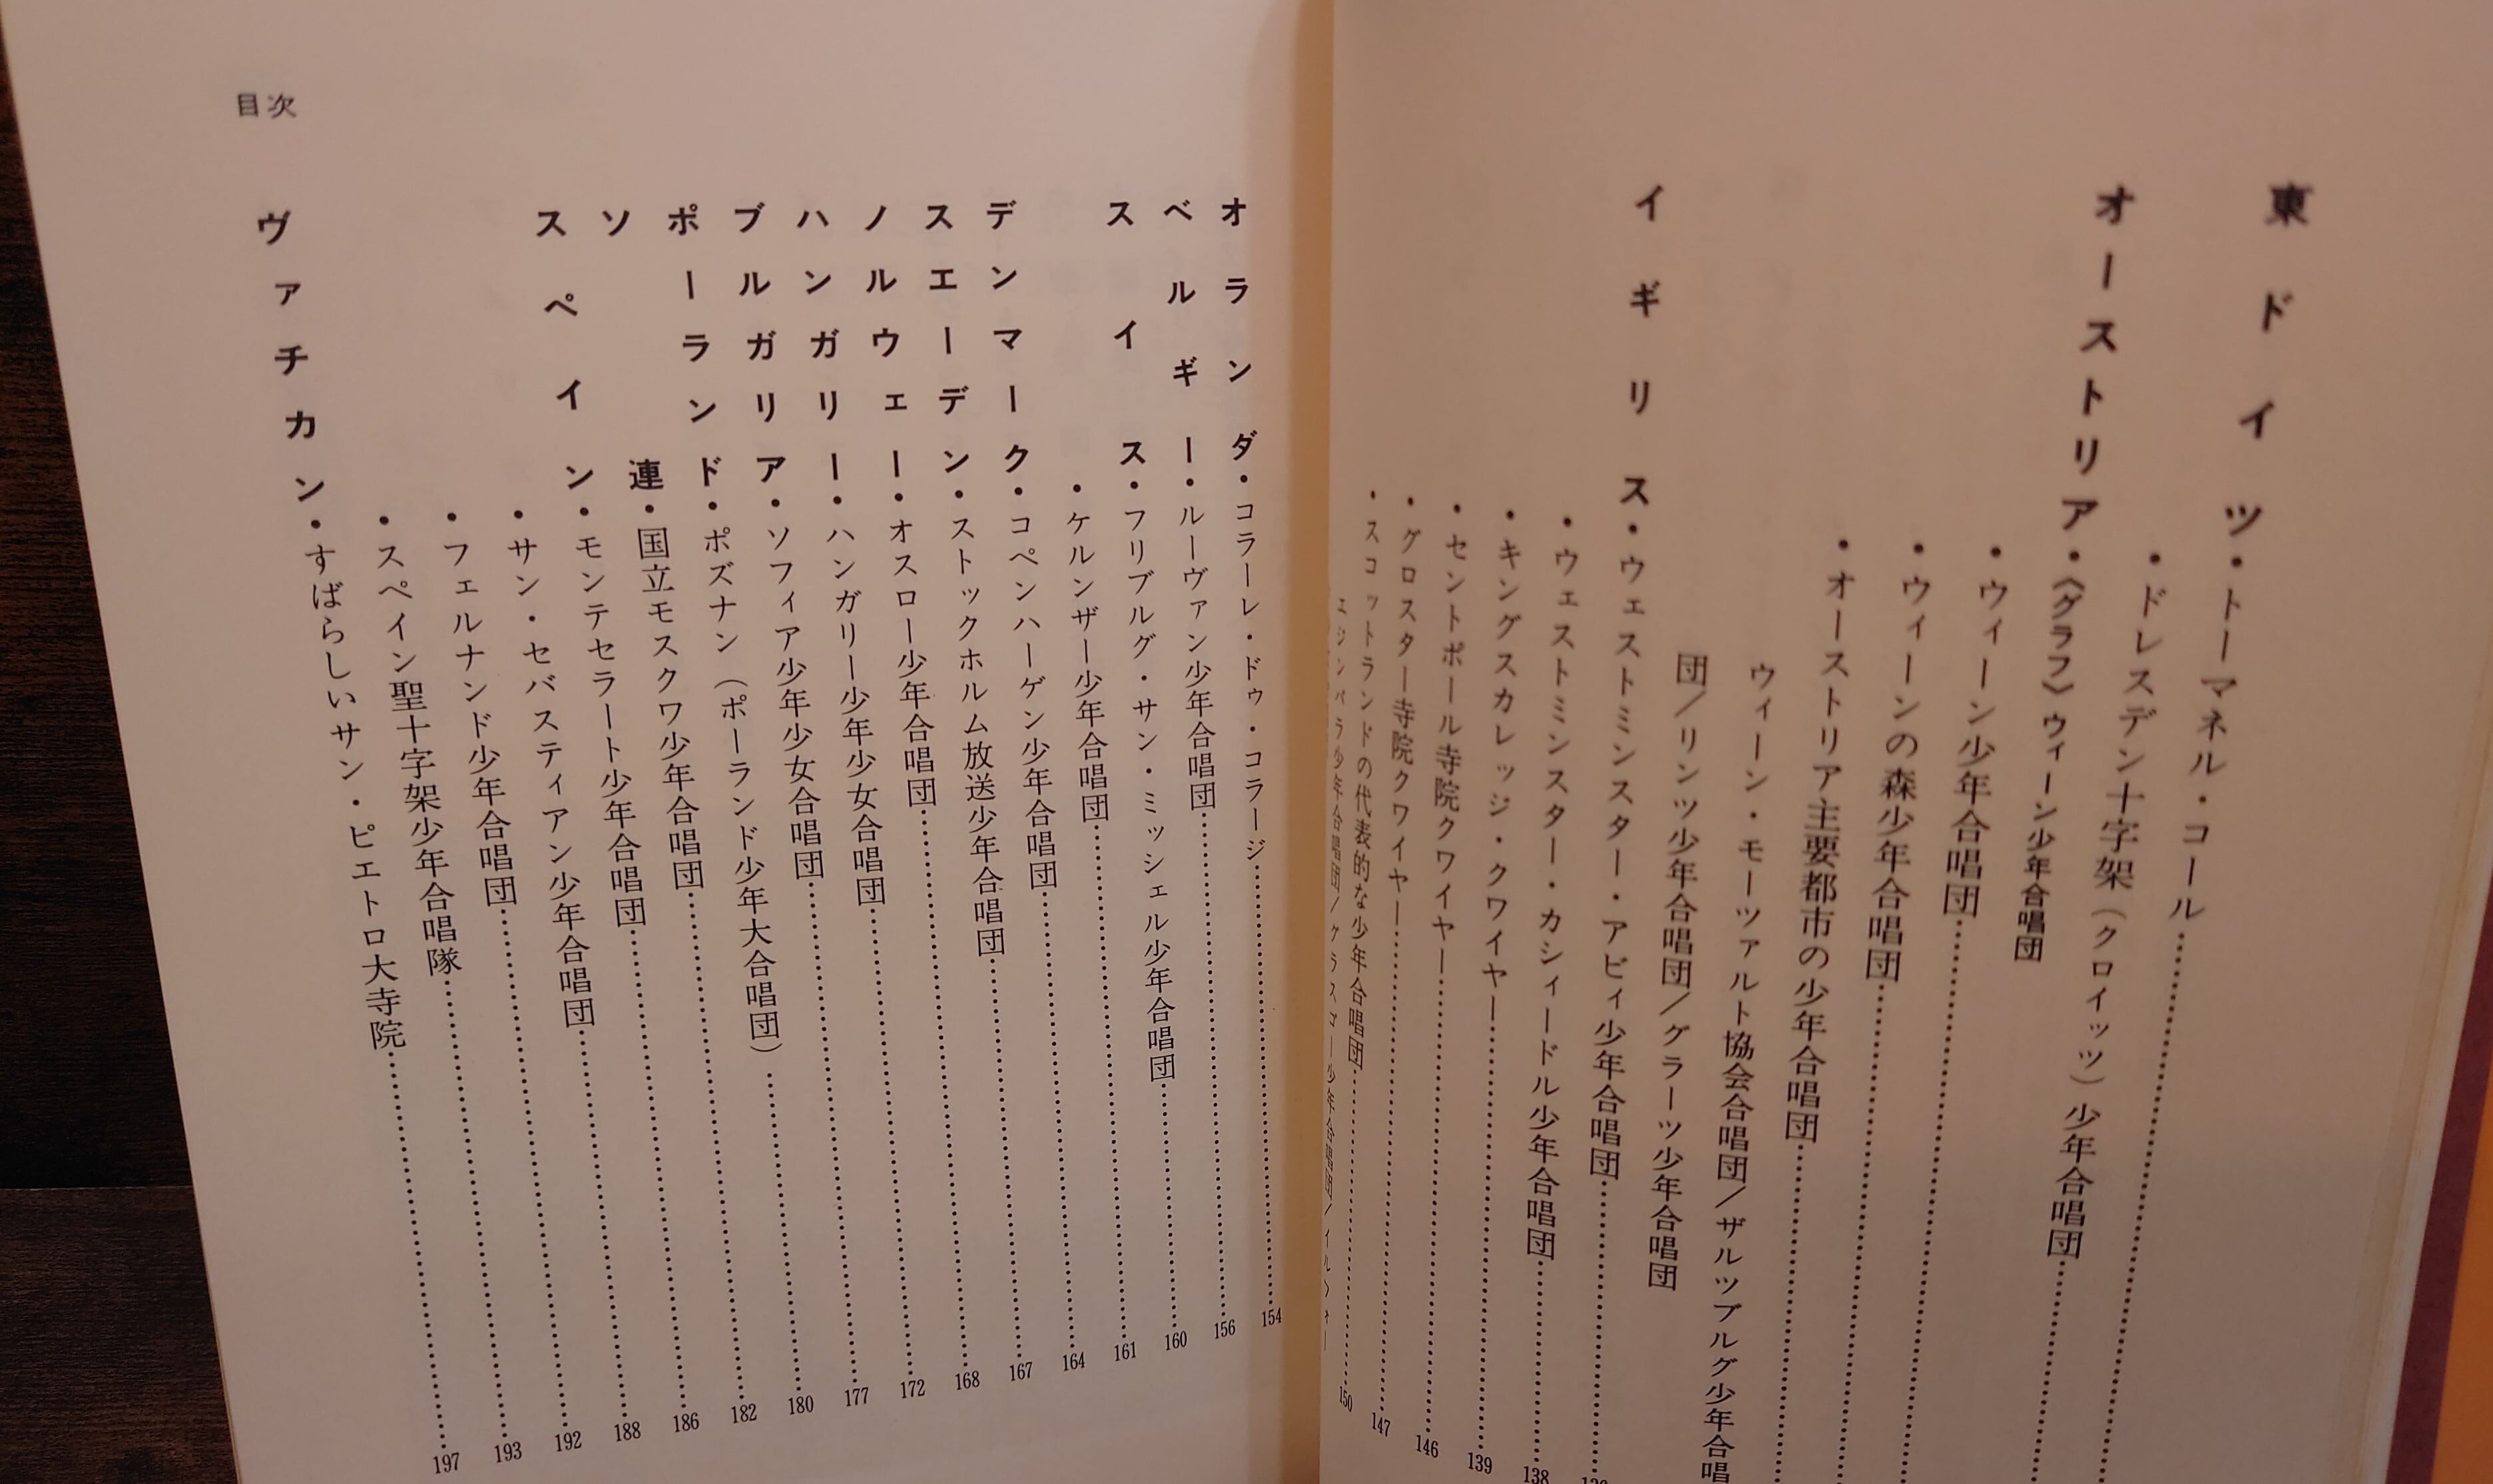 東ドイツ・トーマネル・コール……
・ドレスデン十字架（クロイツ）少年合唱団……
オーストリア・〈グラフ〉ウィーン少年合唱団
・ウィーン少年合唱団……
・ウィーンの森少年合唱団……
・オーストリア主要都市の少年合唱団……
ウィーン・モーツァルト協会合唱団／ザルツブルグ少年合唱
団／リンツ少年合唱団／グラーツ少年合唱団
イギリス・ウェストミンスター・アビィ少年合唱団……
・ウェストミンスター・カシィードル少年合唱団……138
・キングスカレッジ・クワイヤー……139
・セントポール寺院クワイヤー……146
・グロスター寺院クワイヤー……147
・スコットランドの代表的な少年合唱団……150
エジンバラ少年合唱団／グラスゴー少年合唱団／
オランダ・コラーレ・ドゥ・コラージ……154
ベルギー・ルーヴァン少年合唱団……156
スイス・フリブルグ・サン・ミッシェル少年合唱団……160
・ケルンザー少年合唱団……161
デンマーク・コペンハーゲン少年合唱団……164
スエーデン・ストックホルム放送少年合唱団……167
ノルウェー・オスロー少年合唱団……168
ハンガリー・ハンガリー少年少女合唱団……172
ブルガリア・ソフィア少年少女合唱団……177
ポーランド・ポズナン（ポーランド少年大合唱団）……180
ソ連・国立モスクワ少年合唱団……182
スペイン・モンテセラート少年合唱団……186
・サン・セバスティアン少年合唱団……188
・フェルナンド少年合唱団……192
・スペイン聖十字架少年合唱隊……193
ヴァチカン・すばらしいサン・ピエトロ大寺院……197
目次